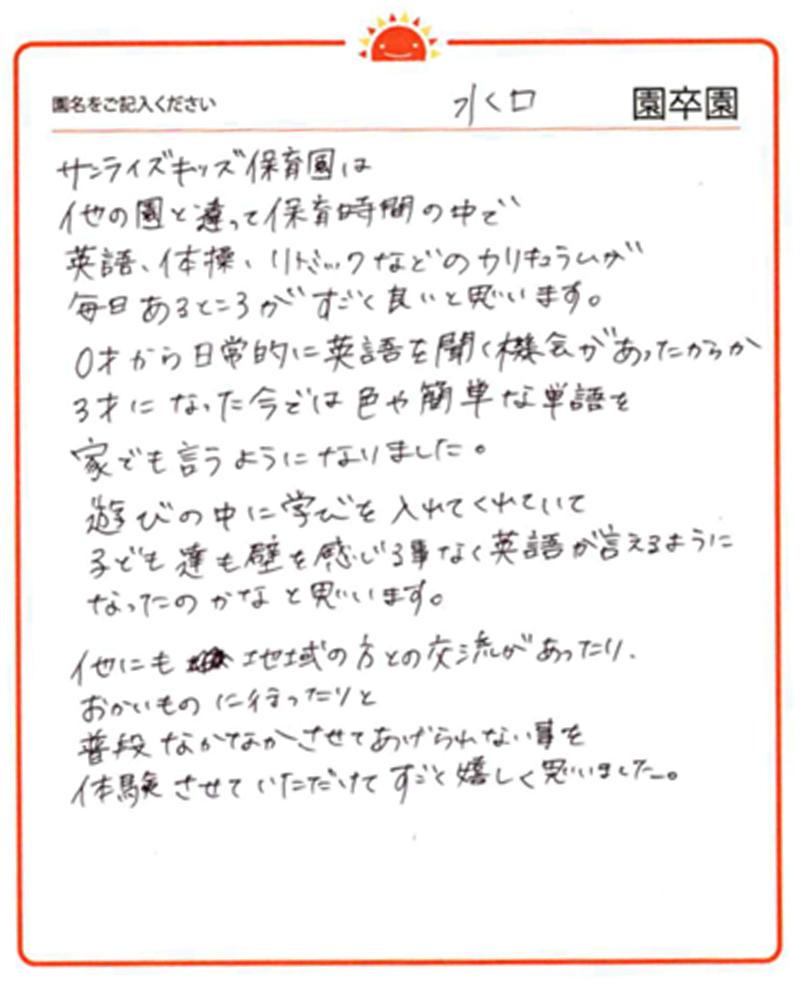 園名をご記入ください 水口 園卒園
サンライズキッズ保育園は
他の園と違って保育時間の中で
英語、体操、リトミックなどのカリキュラムが
毎日あるところがすごく良いと思います。
0才から日常的に英語を聞く機会があったからか
3才になった今では色や簡単な単語を
家でも言うようになりました。
遊びの中に学びを入れてくれていて
子ども達も壁を感じる事なく英語が言えるように
なったのかなと思います。
他にも 地域の方との交流があったり、
おかいものに行ったりと
普段なかなかさせてあげられない事を
体験させていただけてすごく嬉しく思いました。